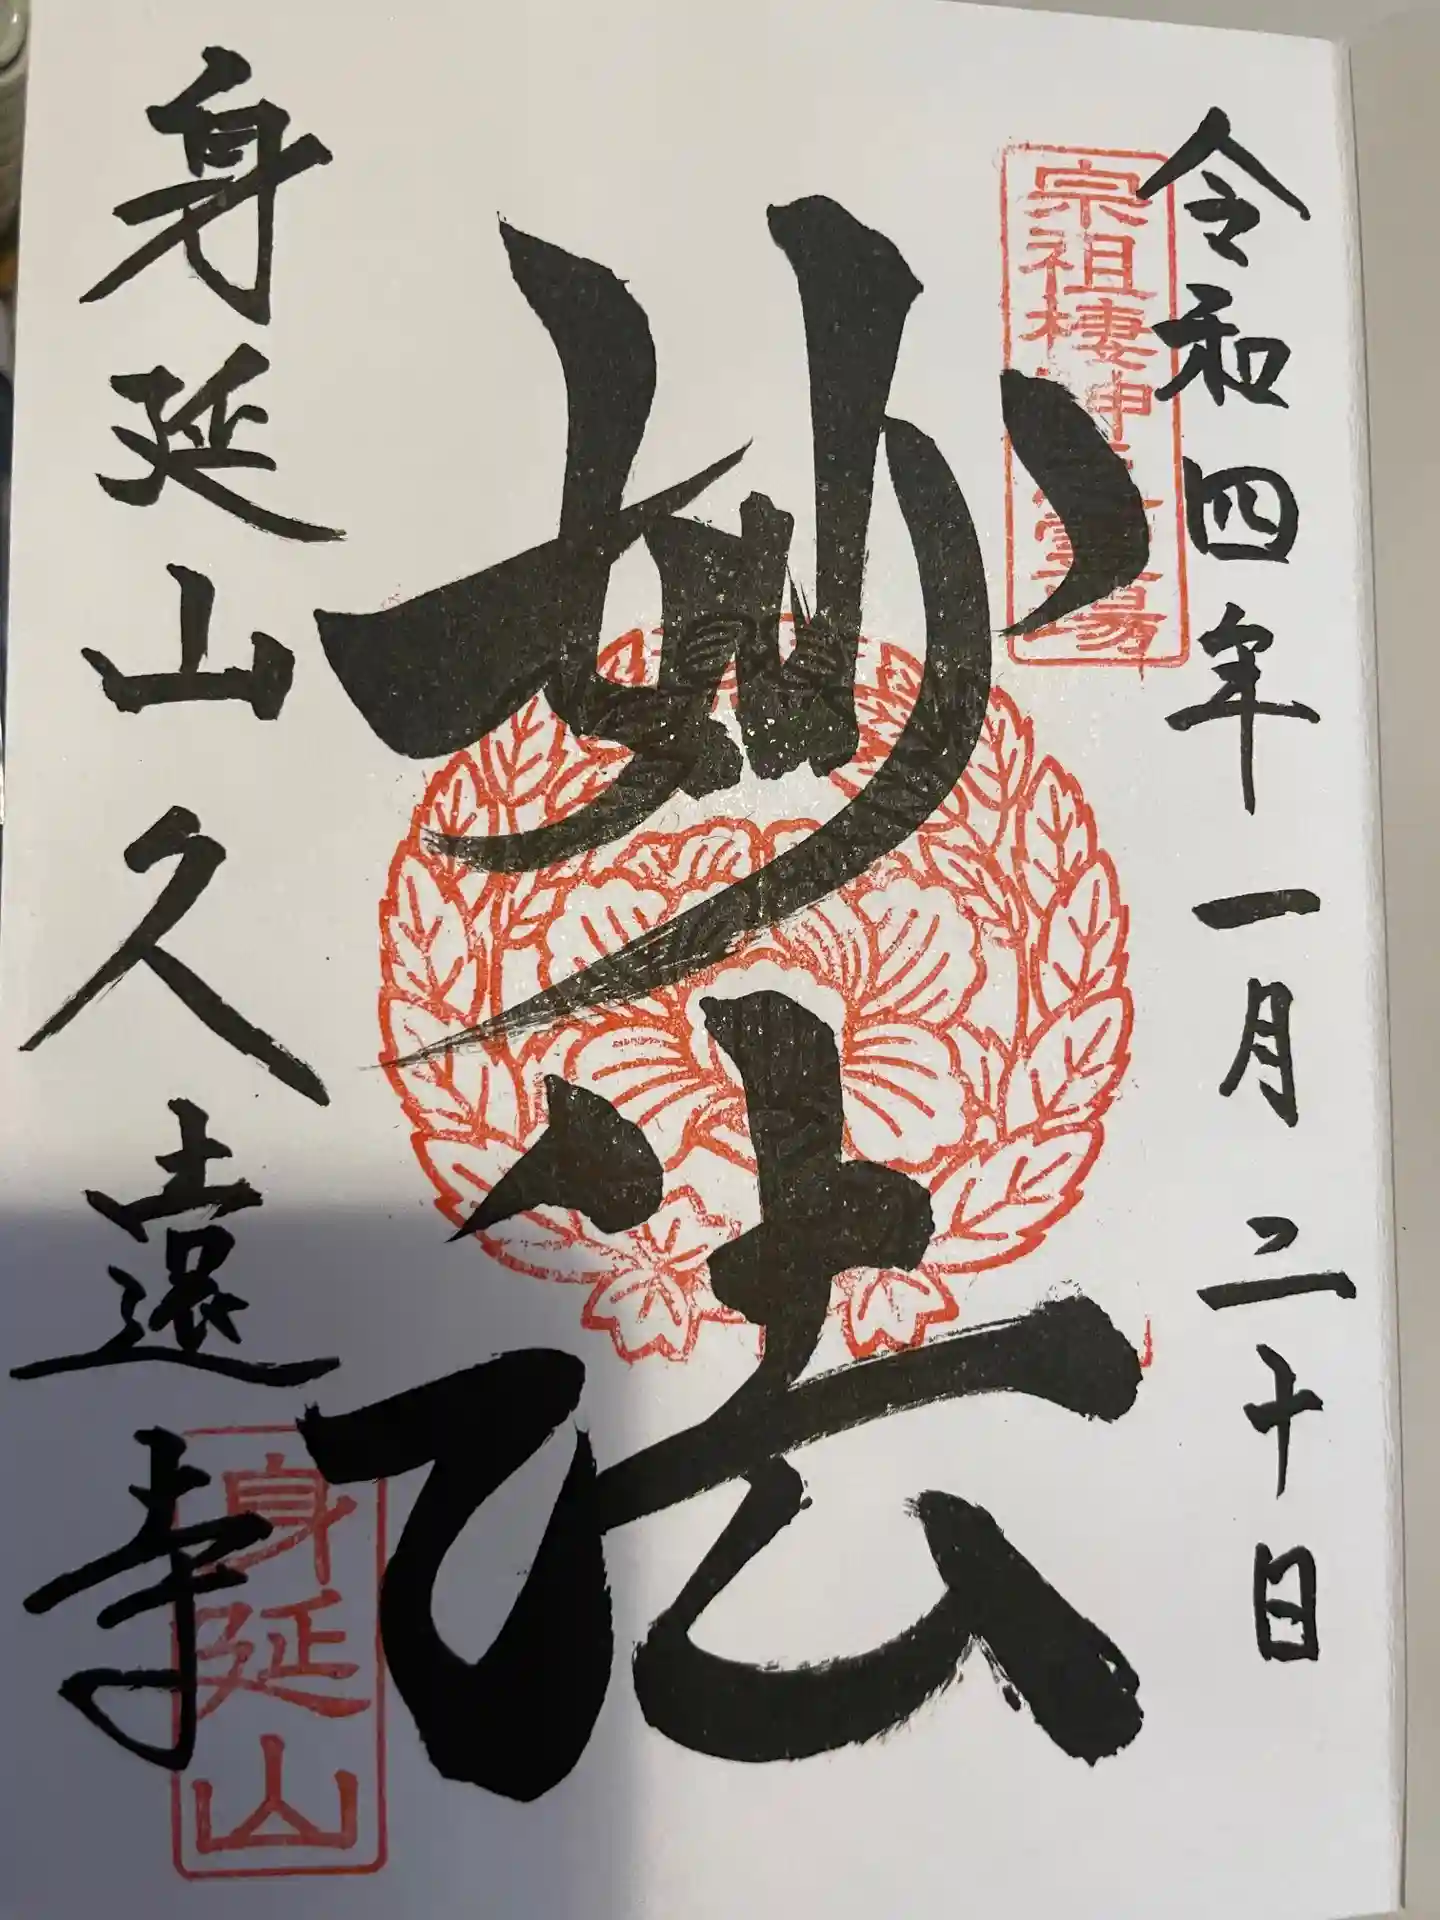 令和四年一月二十日
宗祖棲神
霊場
妙法
身延山久遠寺
身延山